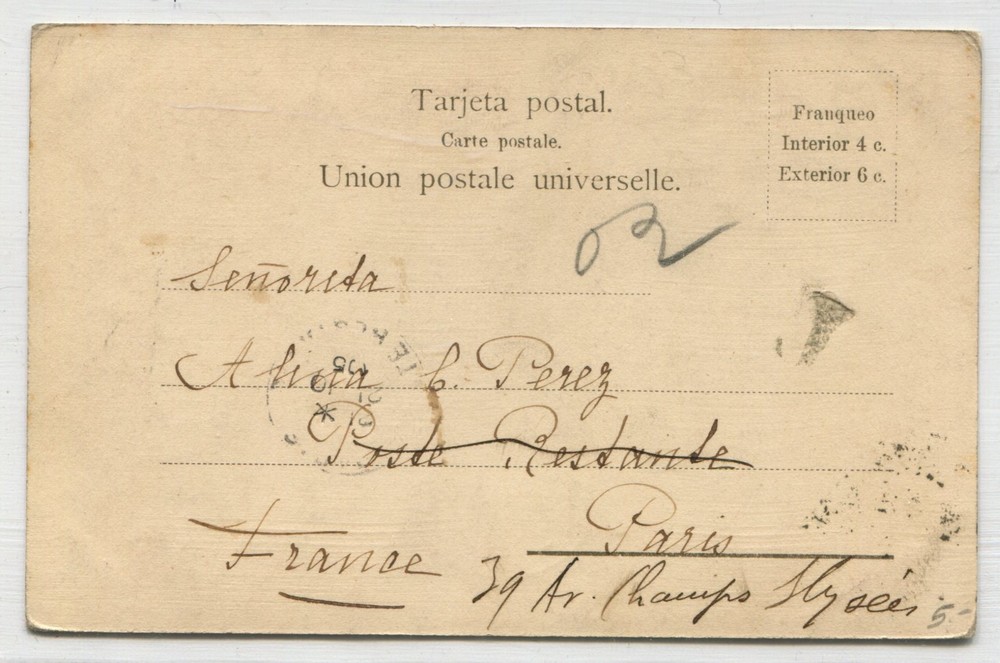 Tarjeta postal.
Carte postale.
Union postale universelle.
Franqueo
Interior 4 c.
Exterior 6 c.
Señorita
Alina C. Perez
Poste Restante
Paris
France
39 Av. Champs Elysées
5-